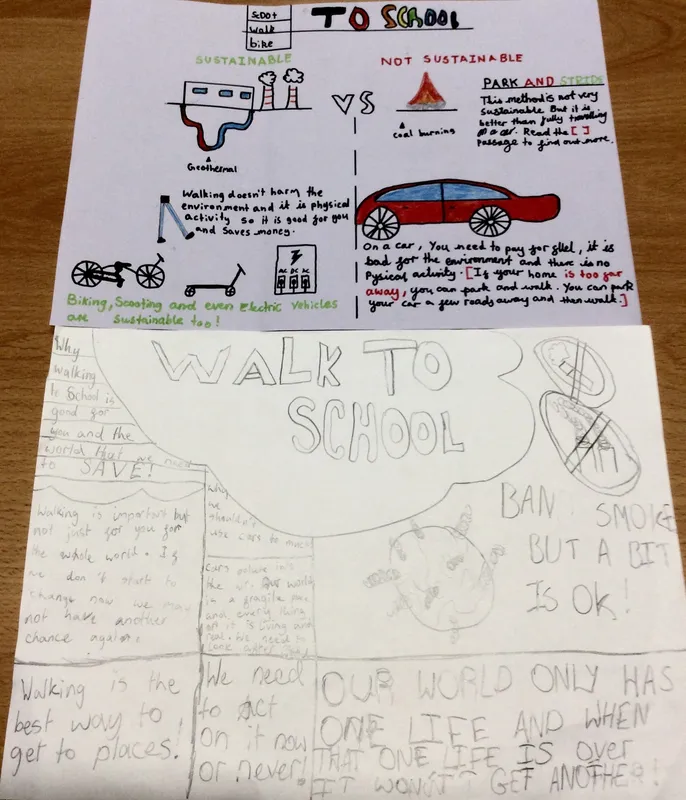 SCOOT
walk
bike
TO SCHOOL
SUSTAINABLE
Geothermal
VS
NOT SUSTAINABLE
coal burning
PARK AND STRIDE
This method is not very
sustainable But it is
better than fully travelling
in a car. Read the [ ]
passage to find out more.
Walking doesn't harm the
environment and it is physical
activity so it is good for you
and saves money.
AC DC AC
Biking, Scooting and even Electric Vehicles
are sustainable too!
On a car, You need to pay for fuel, it is
bad for the environment and there is no
Pysical activity. [If your home is too far
away, you can park and walk. You can park
your car a few roads away and then walk.]
WALK TO
SCHOOL
Why
walking
to School is
good for
you and the
world that we need
to SAVE!
Walking is important but
not just for you for
the whole world. If
we don't start to
change now we may
not have another
chance again.
why
we
shouldn't
use cars to much
cars polute into
the air. Our world
is a fragile
and every thing
on it is living and
real. We need to
BAN SMOKE
BUT A BIT
IS OK!
Walking is the
best way to
get to places!
We need
to act
on it now
or never!
OUR WORLD ONLY HAS
ONE LIFE AND WHEN
THAT ONE LIFE IS OVER
IT WON'T GET ANOTHER!